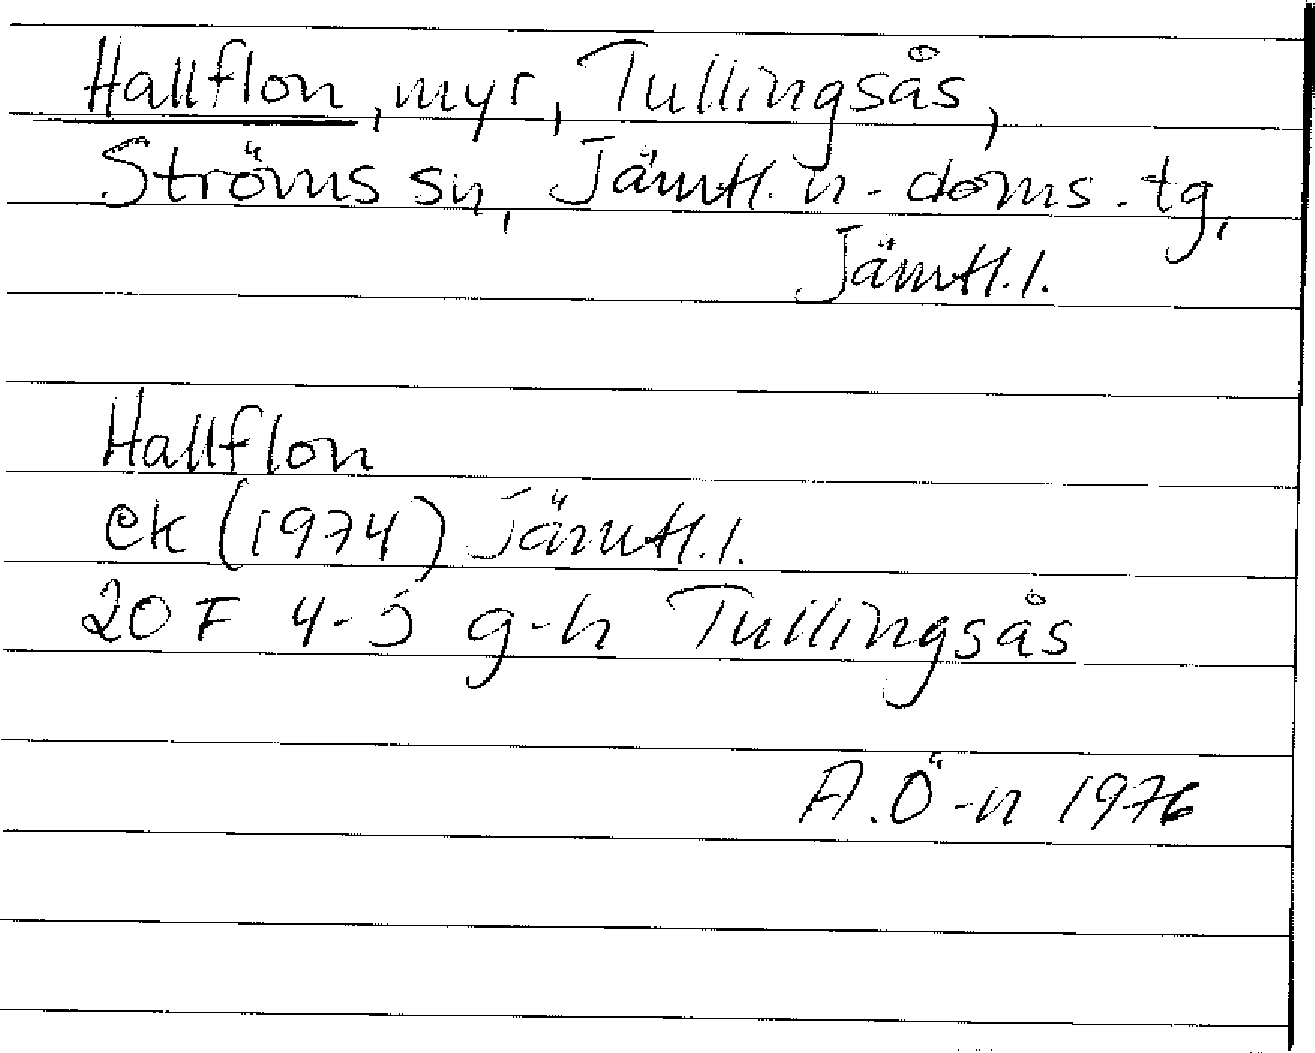 Hallflon, myr, Tullingsås,
Ströms sn, Jämtl. n. doms. tg,
Jämtl. l.
Hallflon
ek (1974) Jämtl. l.
20 F 4-5 g-h Tullingsås
A. Ö-n 1976